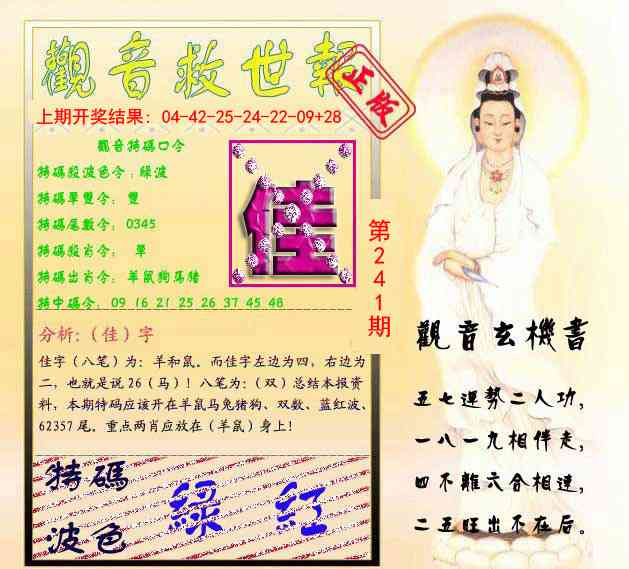 觀音救世報
正版
上期开奖结果：04-42-25-24-22-09+28
觀音特碼口令
特碼殺波色令：綠波
特碼單雙令： 雙
特碼尾數令： 0345
特碼殺肖令： 單
特碼出肖令： 羊鼠狗馬豬
特中碼令： 09 16 21 25 26 37 45 48
佳
第241期
分析:（佳）字
佳字（八笔）为：羊和鼠。而佳字左边为四，右边为
二，也就是说 26（马）！八笔为：（双）总结本报资
料，本期特码应该开在羊鼠马兔猪狗、双数、蓝红波、
62357 尾。重点两肖应放在（羊鼠）身上！
特碼
波色
綠 紅
觀音玄機書
五七運勢二人功，
一八一九相伴走，
四不離六合相連，
二五旺出不在后。